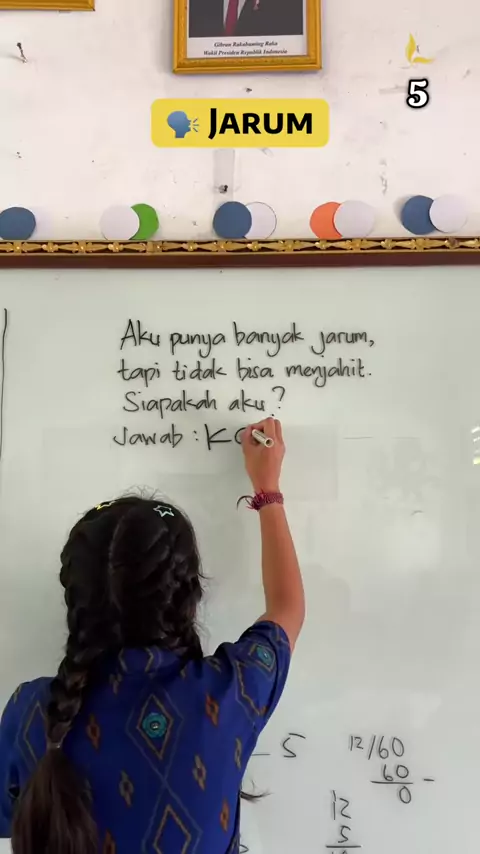 Gibran Rakabuming Raka
Wakil Presiden Republik Indonesia
5
🗣 JARUM
Aku punya banyak jarum,
tapi tidak bisa menjahit.
Siapakah aku?
Jawab : K
5
12/60
60 -
0
12
5